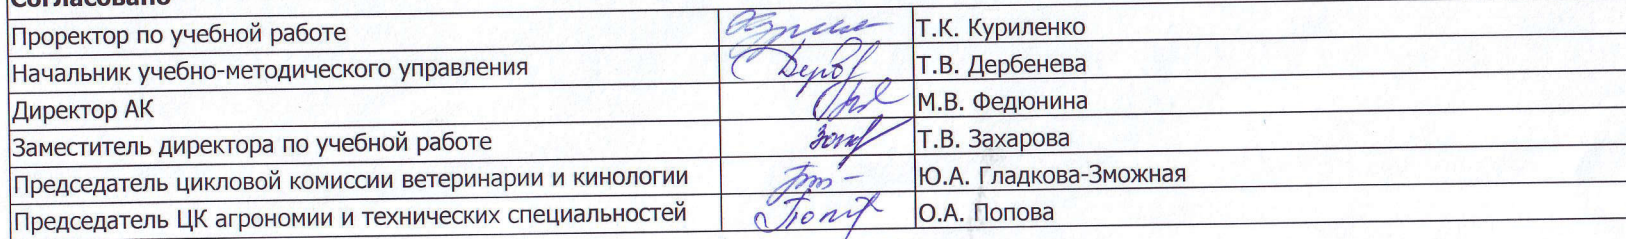 Согласовано
Проректор по учебной работе Т.К. Куриленко
Начальник учебно-методического управления Т.В. Дербенева
Директор АК М.В. Федюнина
Заместитель директора по учебной работе Т.В. Захарова
Председатель цикловой комиссии ветеринарии и кинологии Ю.А. Гладкова-Зможная
Председатель ЦК агрономии и технических специальностей О.А. Попова